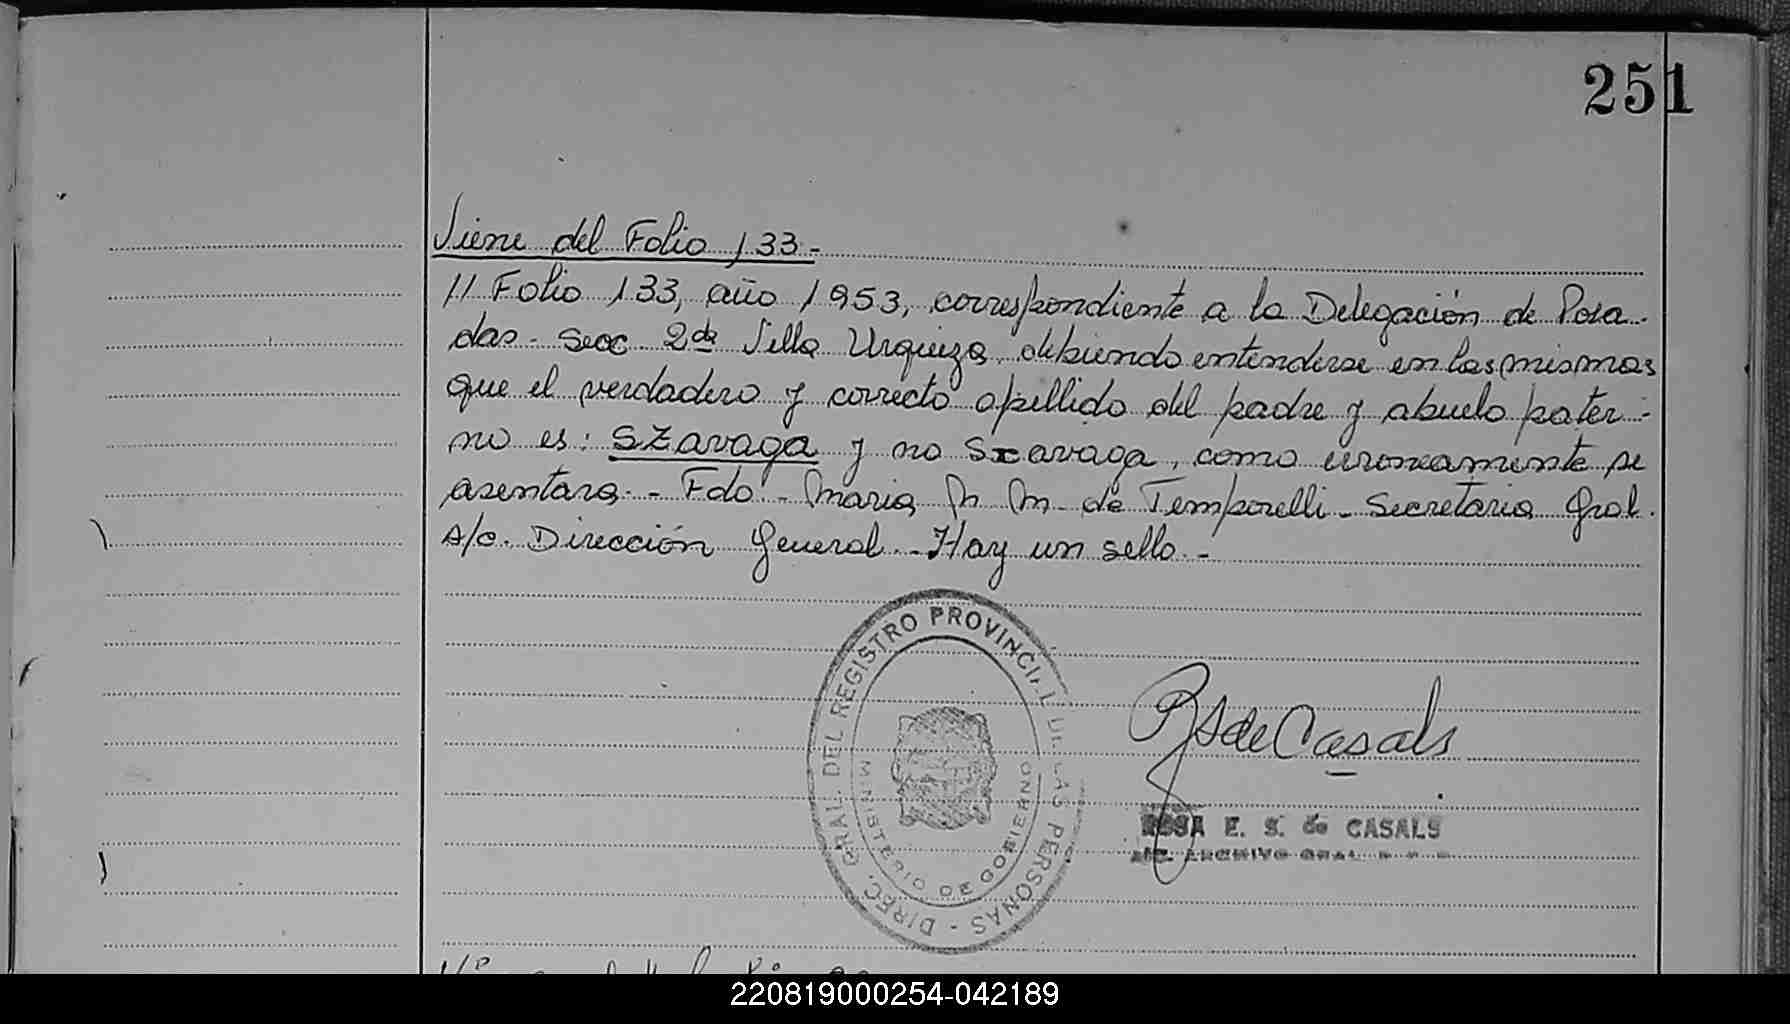 251
Viene del Folio 133.-
// Folio 133, año 1953, correspondiente a la Delegación de Posa-
das - Secc 2da Villa Urquiza, debiendo entenderse en las mismas
que el verdadero y correcto apellido del padre y abuelo pater-
no es: SZavaga y no Sxavaga, como erroneamente se
asentara.- Fdo - Maria M. M. de Temporelli - Secretaria Gral.
A/c. Dirección General.- Hay un sello.-
DIREC. GRAL. DEL REGISTRO PROVINCIAL DE LAS PERSONAS -
MINISTERIO DE GOBIERNO
de Casals
ROSA E. S. de CASALS
A/C. ARCHIVO GRAL.
220819000254-042189